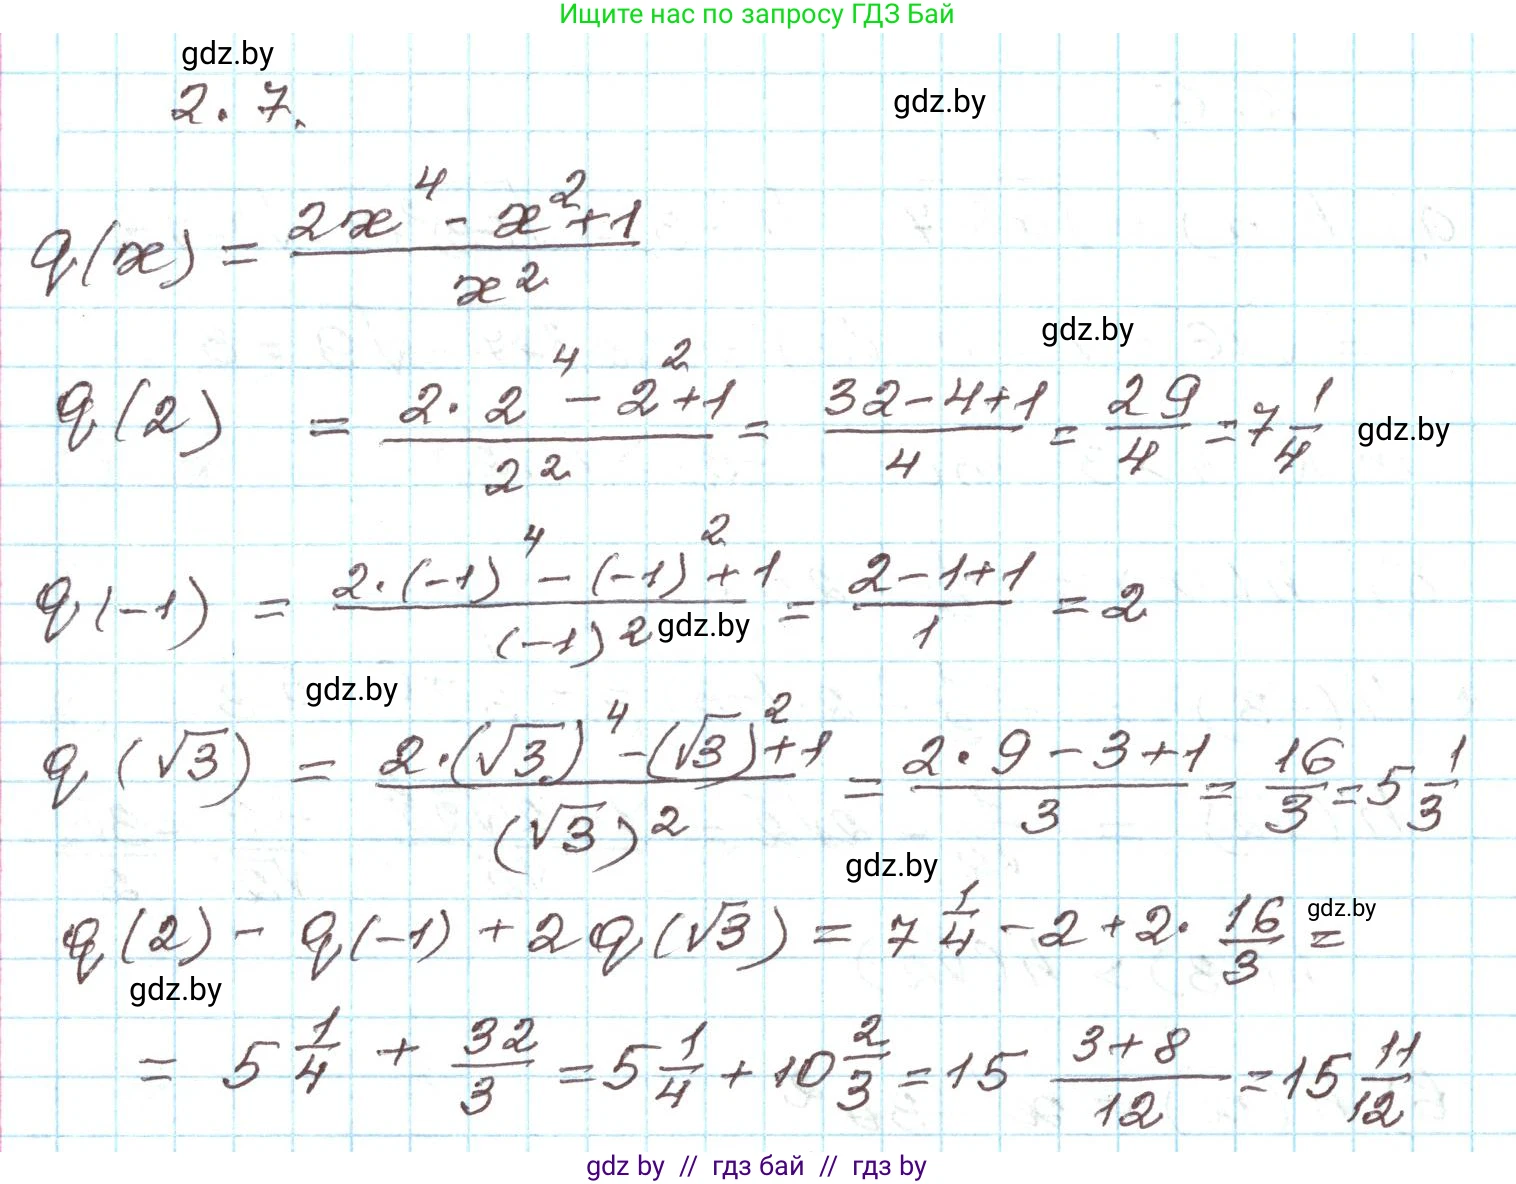 Ищите нас по запросу ГДЗ Бай
gdz.by
2.7.
gdz.by
q(x) = (2x⁴ - x² + 1)/x²
gdz.by
q(2) = (2·2⁴ - 2² + 1)/2² = (32 - 4 + 1)/4 = 29/4 = 7 1/4 gdz.by
q(-1) = (2·(-1)⁴ - (-1)² + 1)/(-1)² = (2 - 1 + 1)/1 = 2
gdz.by
gdz.by
q(√3) = (2·(√3)⁴ - (√3)² + 1)/(√3)² = (2·9 - 3 + 1)/3 = 16/3 = 5 1/3
gdz.by
q(2) - q(-1) + 2q(√3) = 7 1/4 - 2 + 2·16/3 =
gdz.by
gdz.by
= 5 1/4 + 32/3 = 5 1/4 + 10 2/3 = 15 (3+8)/12 = 15 11/12
gdz by // гдз бай // гдз by